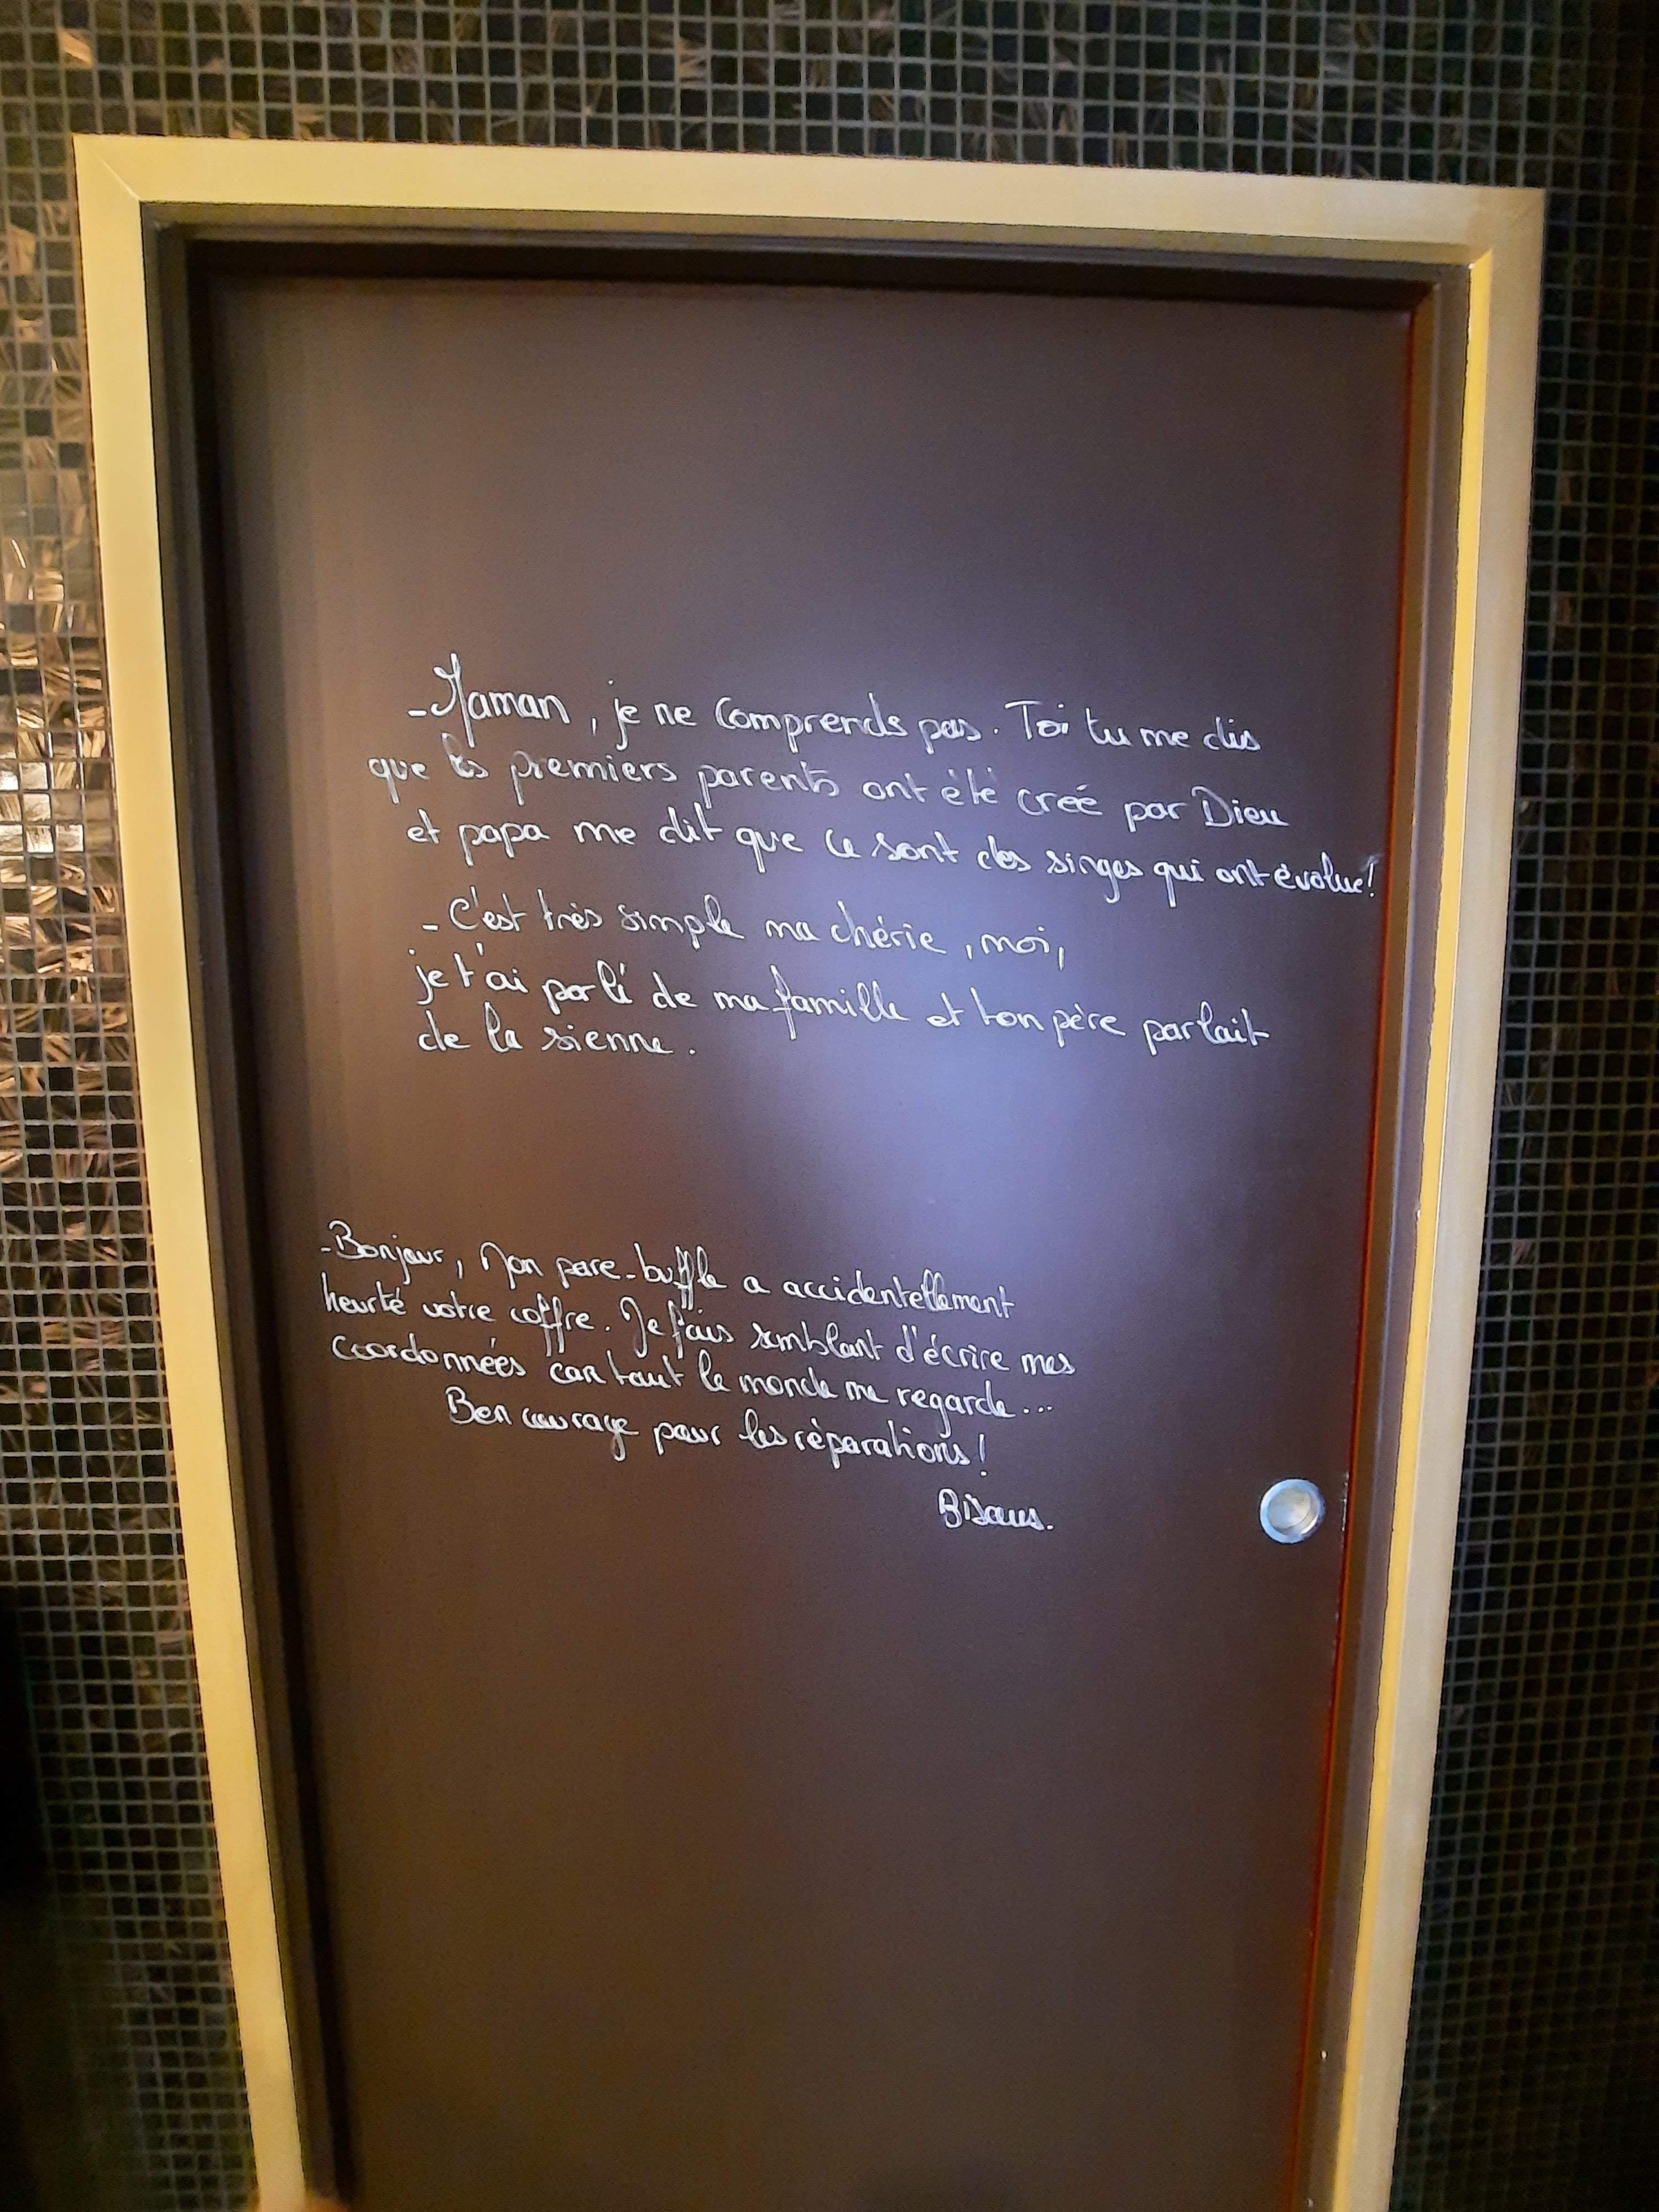 - Maman, je ne comprends pas. Toi tu me dis
que les premiers parents ont été créé par Dieu
et papa me dit que ce sont des singes qui ont évolué!
- C'est très simple ma chérie, moi,
je t'ai parlé de ma famille et ton père parlait
de la sienne.
- Bonjour, Mon pare-buffle a accidentellement
heurté votre coffre. Je fais semblant d'écrire mes
coordonnées car tout le monde me regarde...
Bon courage pour les réparations!
Bisous.